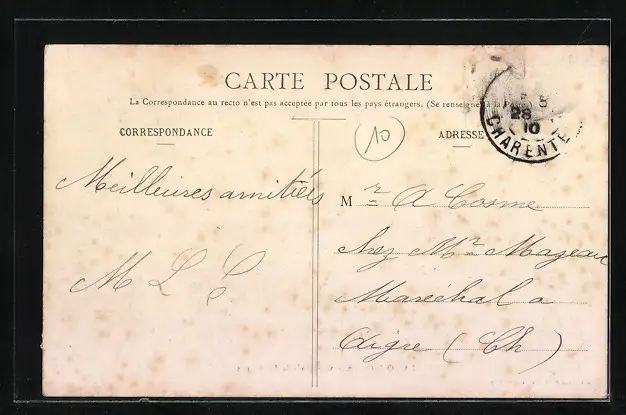 CARTE POSTALE
La Correspondance au recto n'est pas acceptée par tous les pays étrangers. (Se renseigner à la
CORRESPONDANCE
ADRESSE
10
28
10
CHARENTE
Meilleures amitiés
M L
Mr A Cosme
chez Mr Mazeau
Maréchal a
Aigre (Ch)